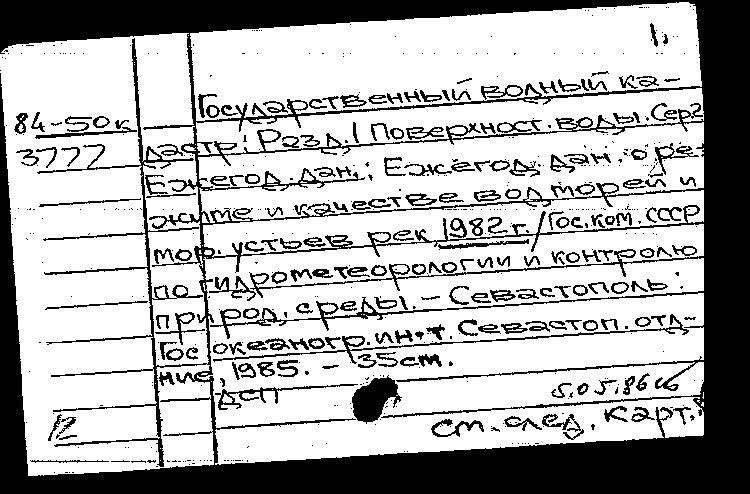 1.
84-50к
3777
Государственный водный ка-
дастр: Разд. 1 Поверхност. воды. Сер 2
Ежегод. дан.: Ежегод. дан. о ре-
жиме и качестве вод морей и
мор. устьев рек 1982 г. / Гос. ком. СССР
по гидрометеорологии и контролю
природ. среды. – Севастополь:
Гос океаногр. ин-т. Севастоп. отд-
ние, 1985. – 35 см.
ДСП
5.05.86
12
см. след. карт.